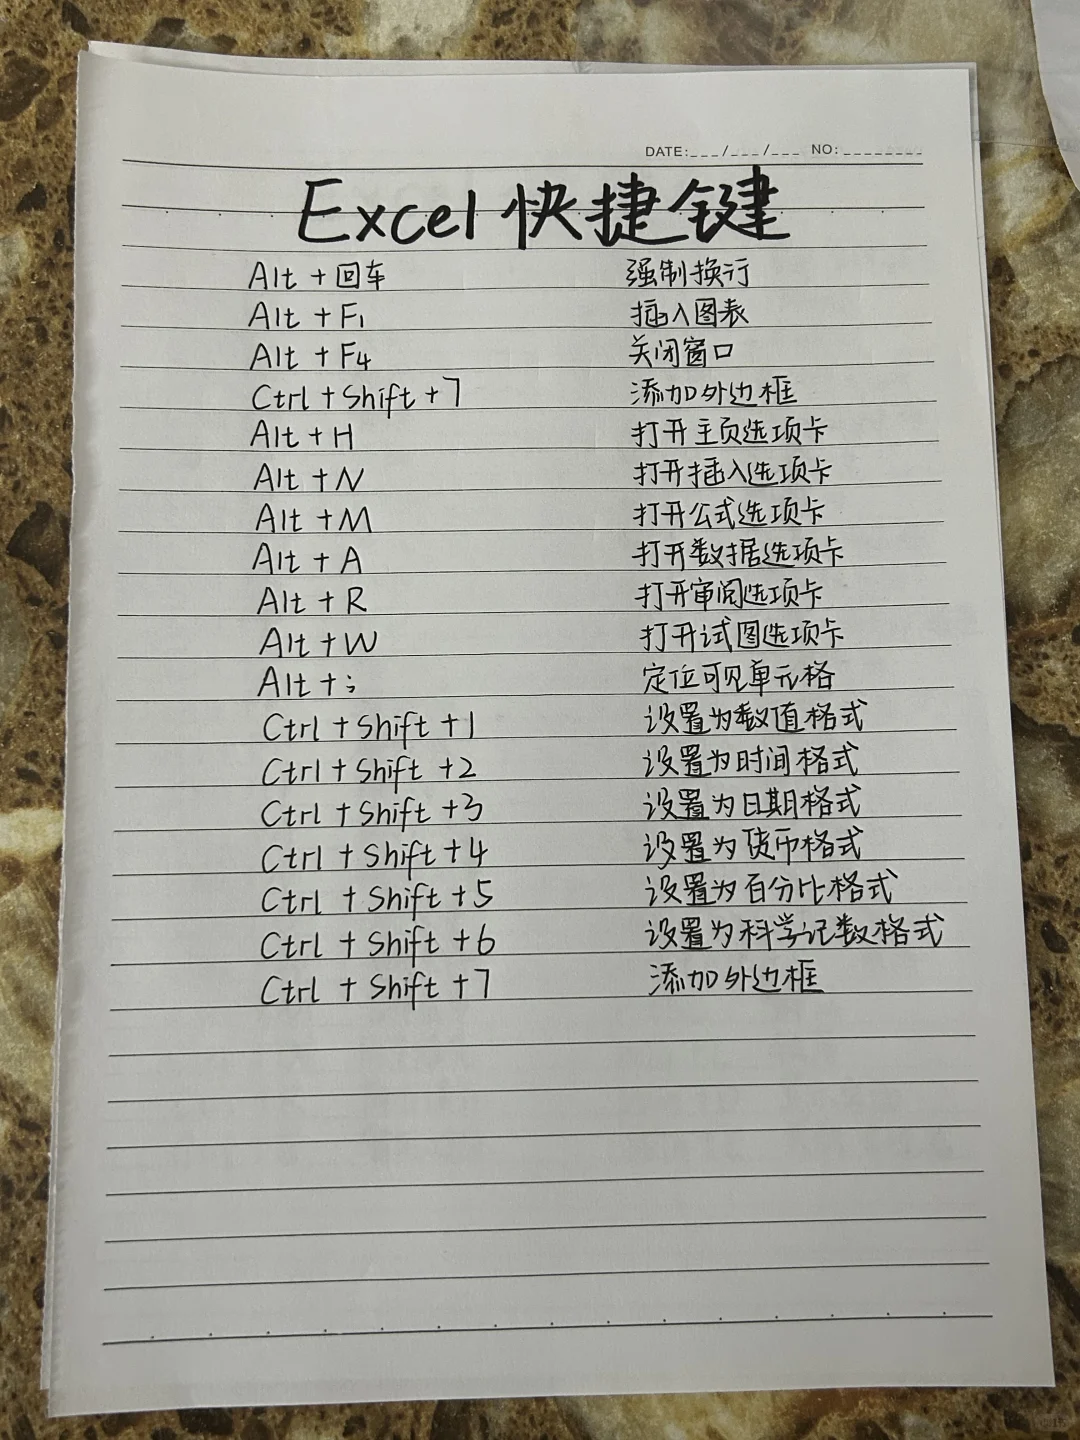 DATE:___/___/___ NO:________
Excel 快捷键
Alt + 回车 强制换行
Alt + F1 插入图表
Alt + F4 关闭窗口
Ctrl + Shift + 7 添加外边框
Alt + H 打开主页选项卡
Alt + N 打开插入选项卡
Alt + M 打开公式选项卡
Alt + A 打开数据选项卡
Alt + R 打开审阅选项卡
Alt + W 打开试图选项卡
Alt + ; 定位可见单元格
Ctrl + Shift + 1 设置为数值格式
Ctrl + Shift + 2 设置为时间格式
Ctrl + Shift + 3 设置为日期格式
Ctrl + Shift + 4 设置为货币格式
Ctrl + Shift + 5 设置为百分比格式
Ctrl + Shift + 6 设置为科学记数格式
Ctrl + Shift + 7 添加外边框